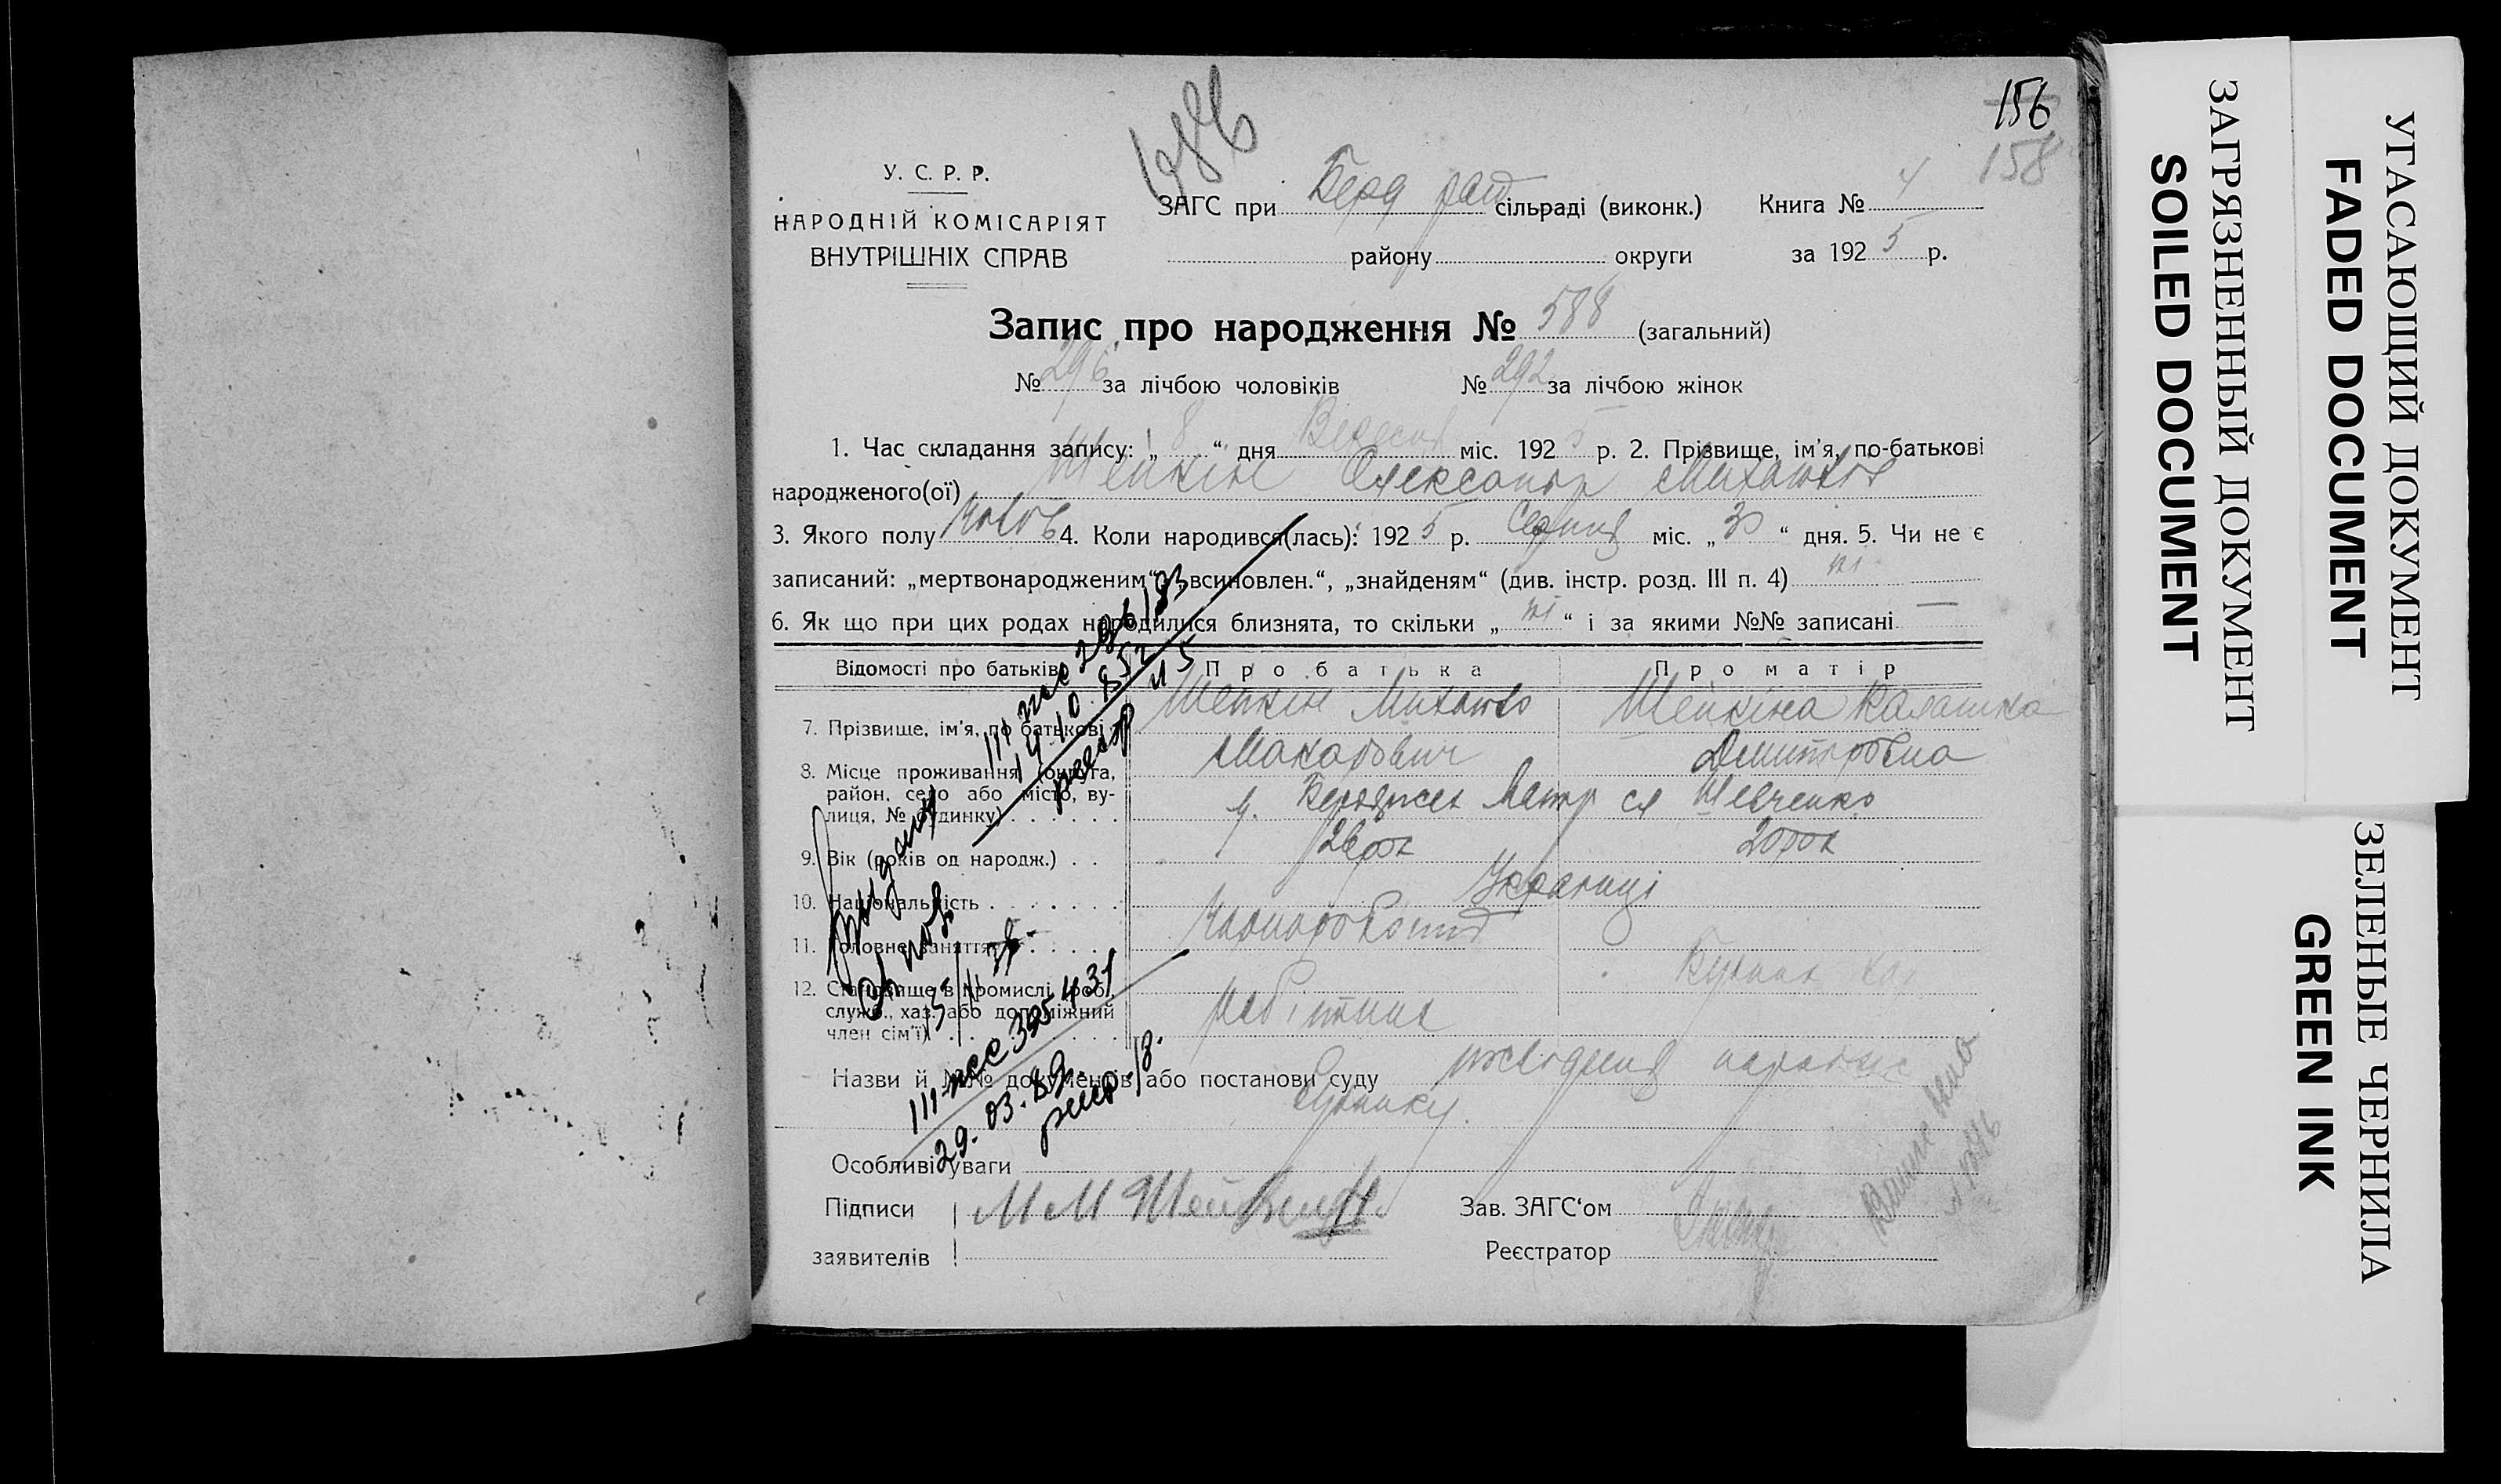 156
158
У. С. Р. Р.
НАРОДНІЙ КОМІСАРІЯТ
ВНУТРІШНІХ СПРАВ
ЗАГС при Берд рай сільраді (виконк.) Книга № 4
району округи за 1925 р.
Запис про народження № 588 (загальний)
№ 296 за лічбою чоловіків № 292 за лічбою жінок
1. Час складання запису: „ 8 “ дня Вересня міс. 1925 р. 2. Прізвище, ім’я, по-батькові
народженого(ої) Шепкін Олександр Михайлов
3. Якого полу чолов 4. Коли народився(лась): 1925 р. Серпня міс. „ 30 “ дня. 5. Чи не є
записаний: „мертвонародженим“, „всиновлен.“, „знайденям“ (див. інстр. розд. III п. 4) ні
6. Як що при цих родах народилися близнята, то скільки „ ні “ і за якими №№ записані —
Відомості про батьків Про батька Про матір
7. Прізвище, ім’я, по батькові Шепкін Михайло Шепкіна
Макарович Дмитровна
8. Місце проживання (округа,
район, село або місто, ву-
лиця, № будинку) м. Бердянск Шевченко
9. Вік (років од народж.) 26 рок 20 рок
10. Національність Українці
11. Головне заняття Чорноробочий
12. Становище в промислі (роб.,
служб., хаз. або допоміжний
член сім’ї) робітник
Назви й №№ документів або постанови суду посвідчення
Особливі уваги
Підписи М М Зав. ЗАГС‘ом
заявителів Реєстратор
14.10.
29.03.89
УГАСАЮЩИЙ ДОКУМЕНТ
FADED DOCUMENT
ЗАГРЯЗНЕННЫЙ ДОКУМЕНТ
SOILED DOCUMENT
ЗЕЛЕНЫЕ ЧЕРНИЛА
GREEN INK